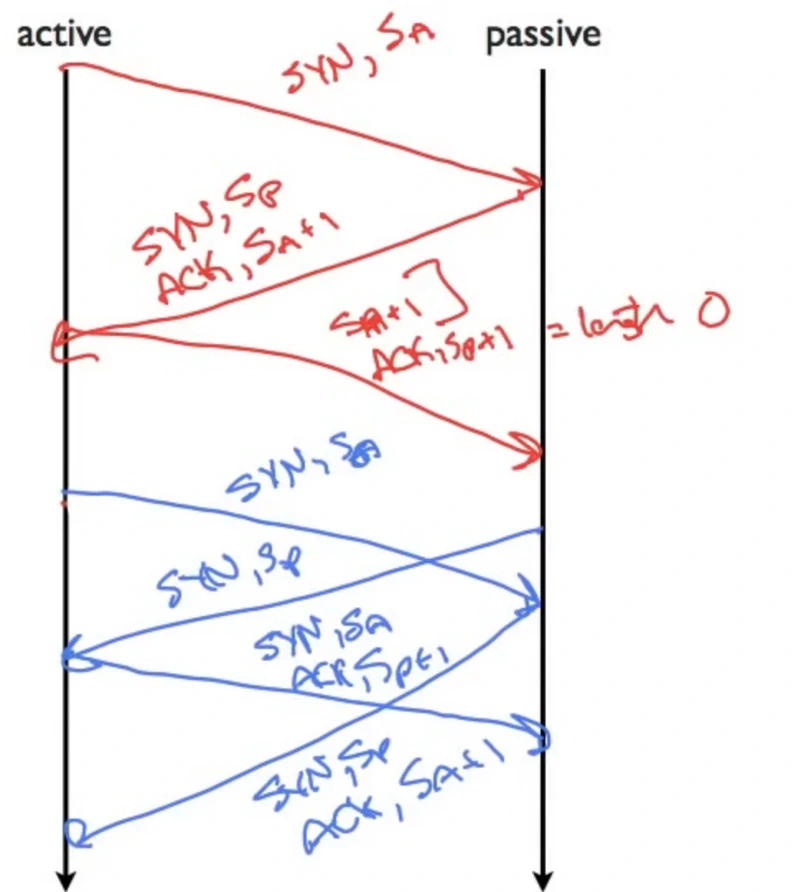 active
passive
SYN, SA
SYN, SP
ACK, SA+1
SA+1]
ACK, SP+1 = length 0
SYN, SA
SYN, SP
SYN, SA
ACK, SP+1
SYN, SP
ACK, SA+1